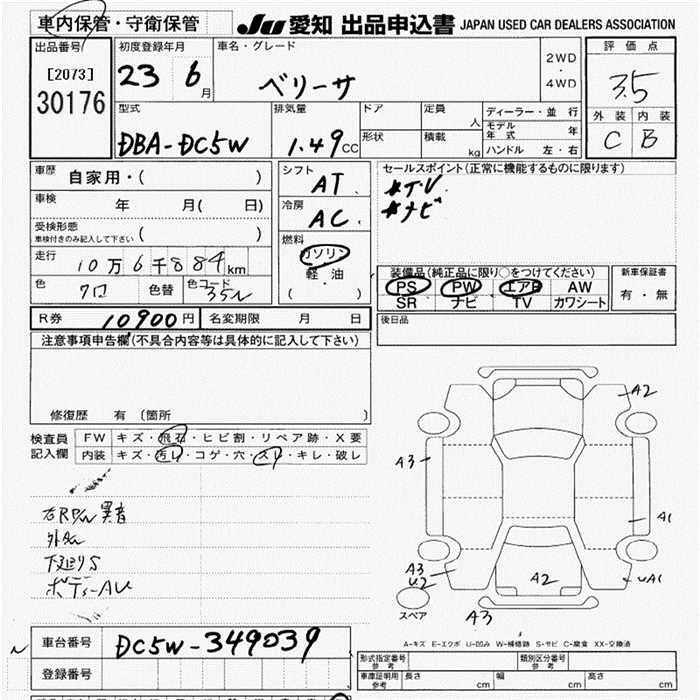 車内保管・守衛保管
JU 愛知 出品申込書 JAPAN USED CAR DEALERS ASSOCIATION
出品番号 初度登録年月 車名・グレード 評価点
[2073]
30176
23 6 月 ベリーサ 2WD ・ 4WD 3.5
型式 排気量 ドア 定員 人 ディーラー・並行 外装 内装
DBA-DC5W 1.49 CC 形状 積載 kg モデル年式 年 C B
ハンドル 左・右
車歴 自家用・( ) シフト AT セールスポイント(正常に機能するものに限ります)
車検 年 月( 日) 冷房 AC #TV
#ナビ
受検形態 車検付きのみ記入して下さい ( ) 燃料 ガソリン・軽油 ( )
走行 10万6千884 km 装備品(純正品に限り○をつけてください) 新車保証書
色 色替 色コード 35N PS PW エアB AW 有・無
SR ナビ TV カワシート
R券 10900円 名変期限 月 日 後日品
注意事項申告欄(不具合内容等は具体的に記入して下さい)
修復歴 有 〔箇所 〕
検査員記入欄 FW キズ・飛石・ヒビ割・リペア跡・X要
内装 キズ・汚レ・コゲ・穴・スレ・キレ・破レ
A2
A3
A1
A3
U2
A2
A3
スペア
下廻りS
A-キズ E-エクボ U-凹み W-補修跡 S-サビ C-腐食 XX-交換済
車台番号 DC5W-349039
登録番号
形式指定番号 参考 類別区分番号 参考
車庫証明用 参考 長さ cm 幅 cm 高さ cm